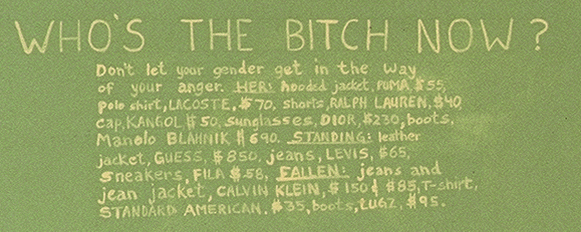 WHO'S THE BITCH NOW?
Don't let your gender get in the way
of your anger. HER: hooded jacket, PUMA $55,
Polo shirt, LACOSTE, $70, shorts, RALPH LAUREN, $40
cap, KANGOL $50, sunglasses, DIOR, $230, boots,
Manolo BLAHNIK $690. STANDING: leather
jacket, GUESS, $850, jeans, LEVIS, $65,
sneakers, FILA $58, FALLEN: jeans and
jean jacket, CALVIN KLEIN, $150 & $85, T-shirt,
STANDARD AMERICAN. $35, boots, LUGZ, $95.